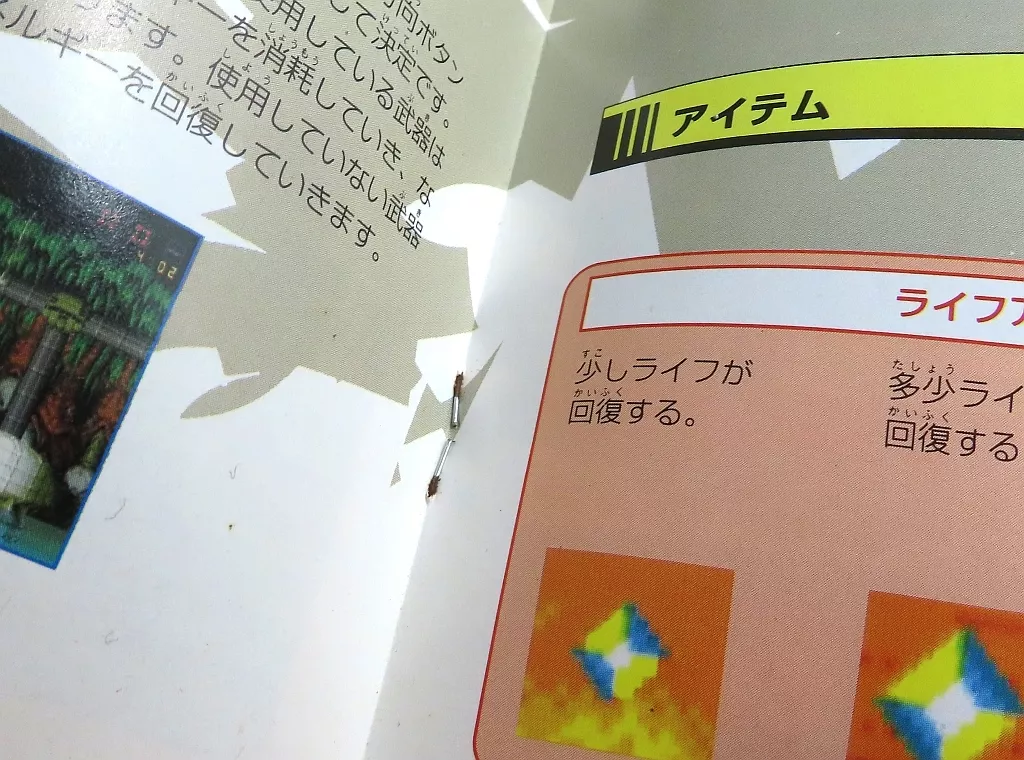 方向ボタン
して決定です。
使用している武器は
ギーを消耗していき、な
ります。使用していない武器
ネルギーを回復していきます。
アイテム
ライフア
少しライフが
回復する。
多少ライ
回復する